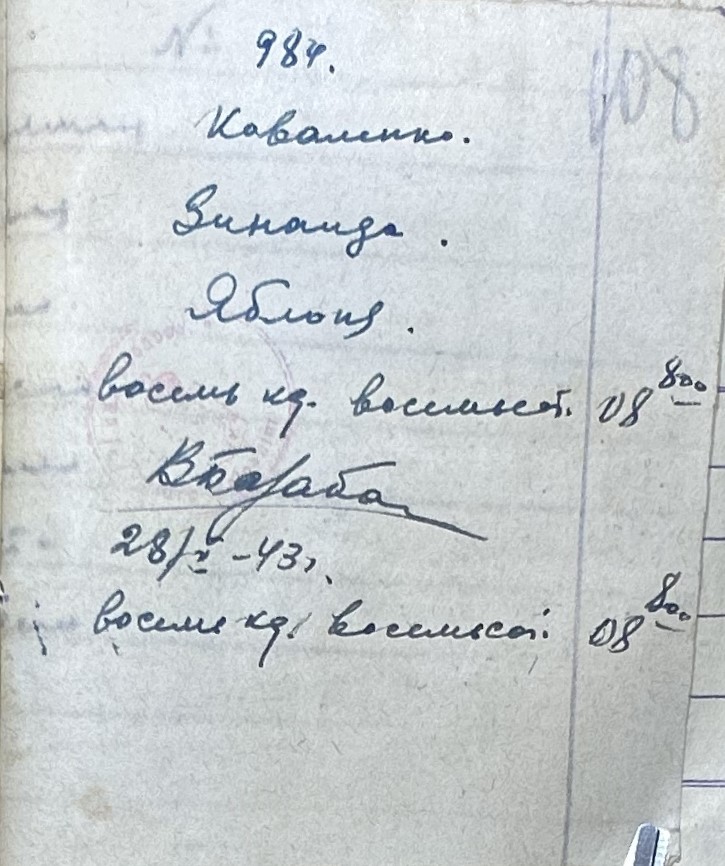 №
984.
108
Коваленко.
Зинаида.
Яблоня.
восемь кд. восемьсот. 08 800
28/V-43г.
восемь кд. восемьсот. 08 800